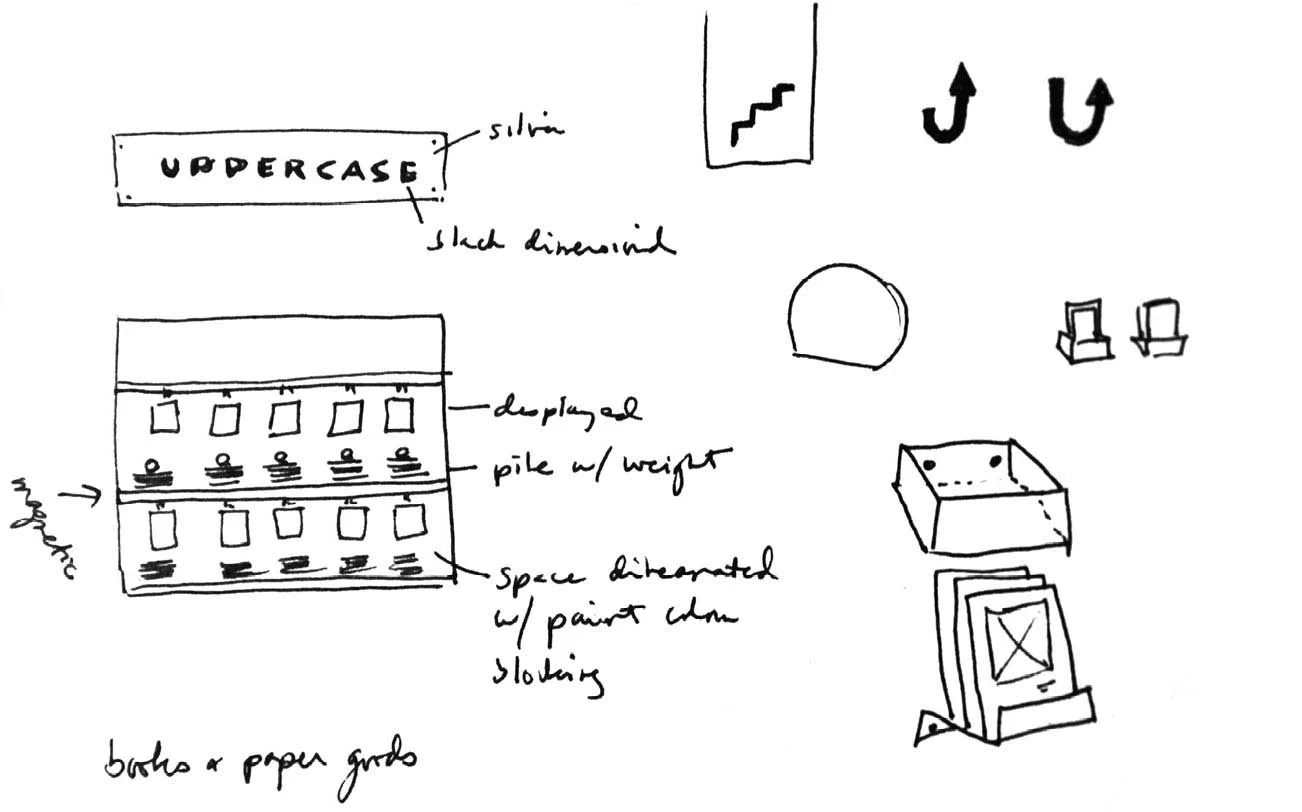 silver
UPPERCASE
black dimensional
displayed
pile w/ weight
magnetic
space differentiated
w/ paint colour
blocking
books & paper goods